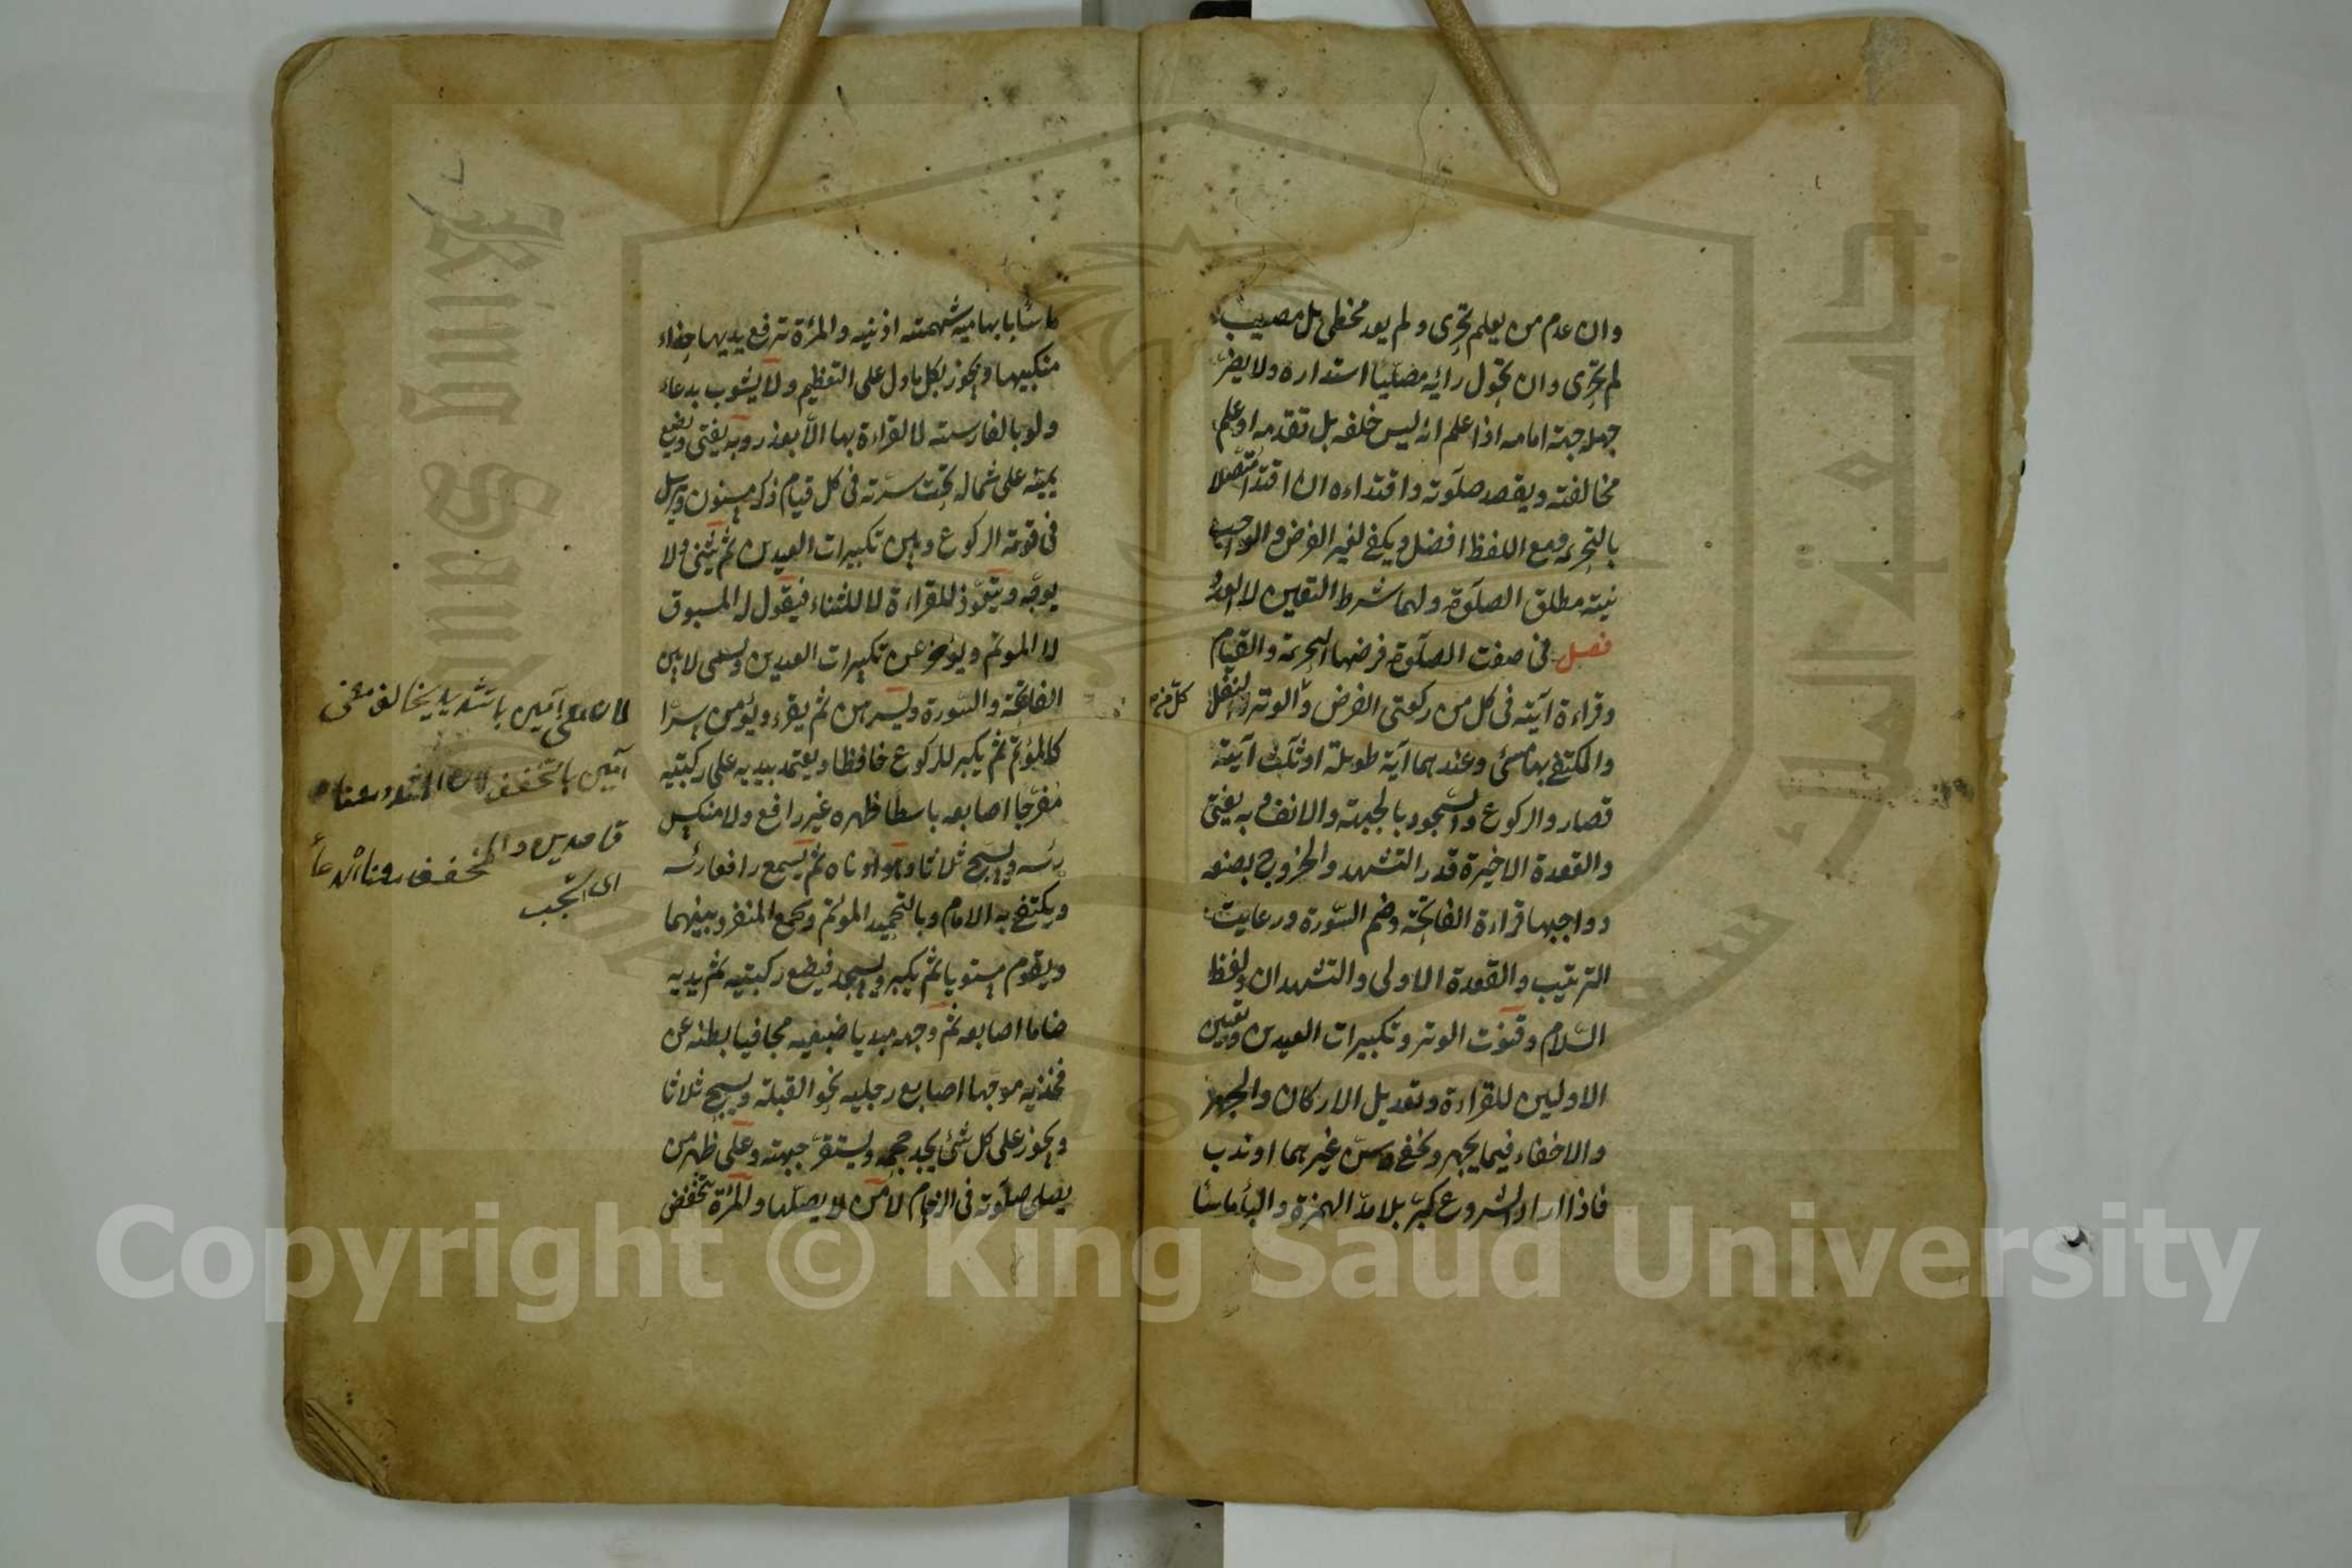 وان عدم من يعلم تحرى ولم يعد مخطئ بل مصيب
لم يتحرى وان تحول رائه مصليا استداره ولا يضر
جهله جهة امامه اذا علم انه ليس خلفه بل تقدمه او علم
مخالفته ويقصد صلوته واقتداءه ان اقتدا متصلا
بالتحريمه ومع اللفظ افضل ويكفي لغير الفرض والواجب
نيته مطلق الصلوة ولهما شرط التعيين لا العدد
فصل في صفت الصلوة فرضها التحريمة والقيام
وقراءة آيته في كل من ركعتى الفرض والوتر والنفل
كل
والمكتفى بها مسئ وعندهما آية طويلة او ثلث آيته
قصار والركوع والسجود بالجبهته والانف وبه يفتى
والقعدة الاخيرة قدر التشهد والخروج بصنعه
وواجبها قراءة الفاتحة وضم السورة ورعايت
الترتيب والقعدة الاولى والتشهدان ولفظ
السلام وقنوت الوتر وتكبيرات العيدين وتعيين
الاوليين للقراءة وتعديل الاركان والجهر
والاخفاء فيما يجهر ويخفى وسن غيرهما او ندب
فاذا اراد الشروع كبر بلا مد الهمزة والباء ماسا
ماسا بابهاميه شهمته اذنيه والمرءة ترفع يديها حذاء
منكبيها ويجوز بكل ما دل على التعظيم ولا يشوب بدعاء
ولو بالفارسية لا القراءة بها الا بعذر وبه يفتى ويضع
يمينه على شماله تحت سرته في كل قيام ذكر مسنون ويرسل
في قومة الركوع وبين تكبيرات العيدين ثم يثنى ولا
يوجه ويتعوذ للقراءة لا للثناء فيقول له المسبوق
لا الموتم ويؤخر عن تكبيرات العيدين ويسمى لا بين
الفاتحة والسورة ويسرهن ثم يقرء ويؤمن سرا
كالمؤتم ثم يكبر للركوع خافظا ويعتمد بيديه على ركبتيه
مفرجا اصابعه باسطا ظهره غير رافع ولا منكس
رئسه ويسبح ثلاثا وهو ادناه ثم يسمع رافعا رئسه
ويكتفى به الامام وبالتحميد الموتم ويجمع المنفرد بينهما
ويقوم مستويا ثم يكبر ويسجد فيضع ركبتيه ثم يديه
ضاما اصابعه ثم وجهه مبديا ضبعيه مجافيا بطنه عن
فخذيه موجها اصابع رجليه نحو القبلة ويسبح ثلاثا
ويجوز على كل شئ يجد حجمه ويستقر جبهته وعلى ظهر من
يصلى صلوته في الزحام لا من لا يصليها والمرءة تخفض
لان معنى آمين باتشديد يخالف معنى
آمين باتخفف لان المشدد معناه
قاصدين والمخفف معناه ادعاءً
اى استجب